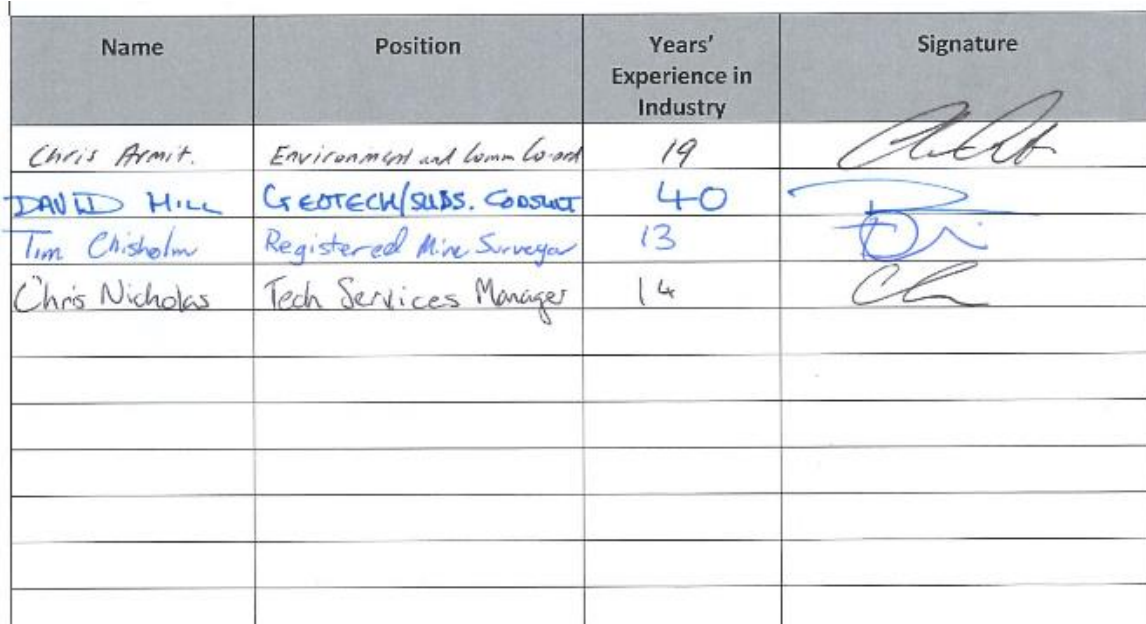 Name Position Years' Experience in Industry Signature
Chris Armit. Environment and Comm Co-ord 19
DAVID HILL GEOTECH/SUBS. CONSULT 40
Tim Chisholm Registered Mine Surveyor 13
Chris Nicholas Tech Services Manager 14